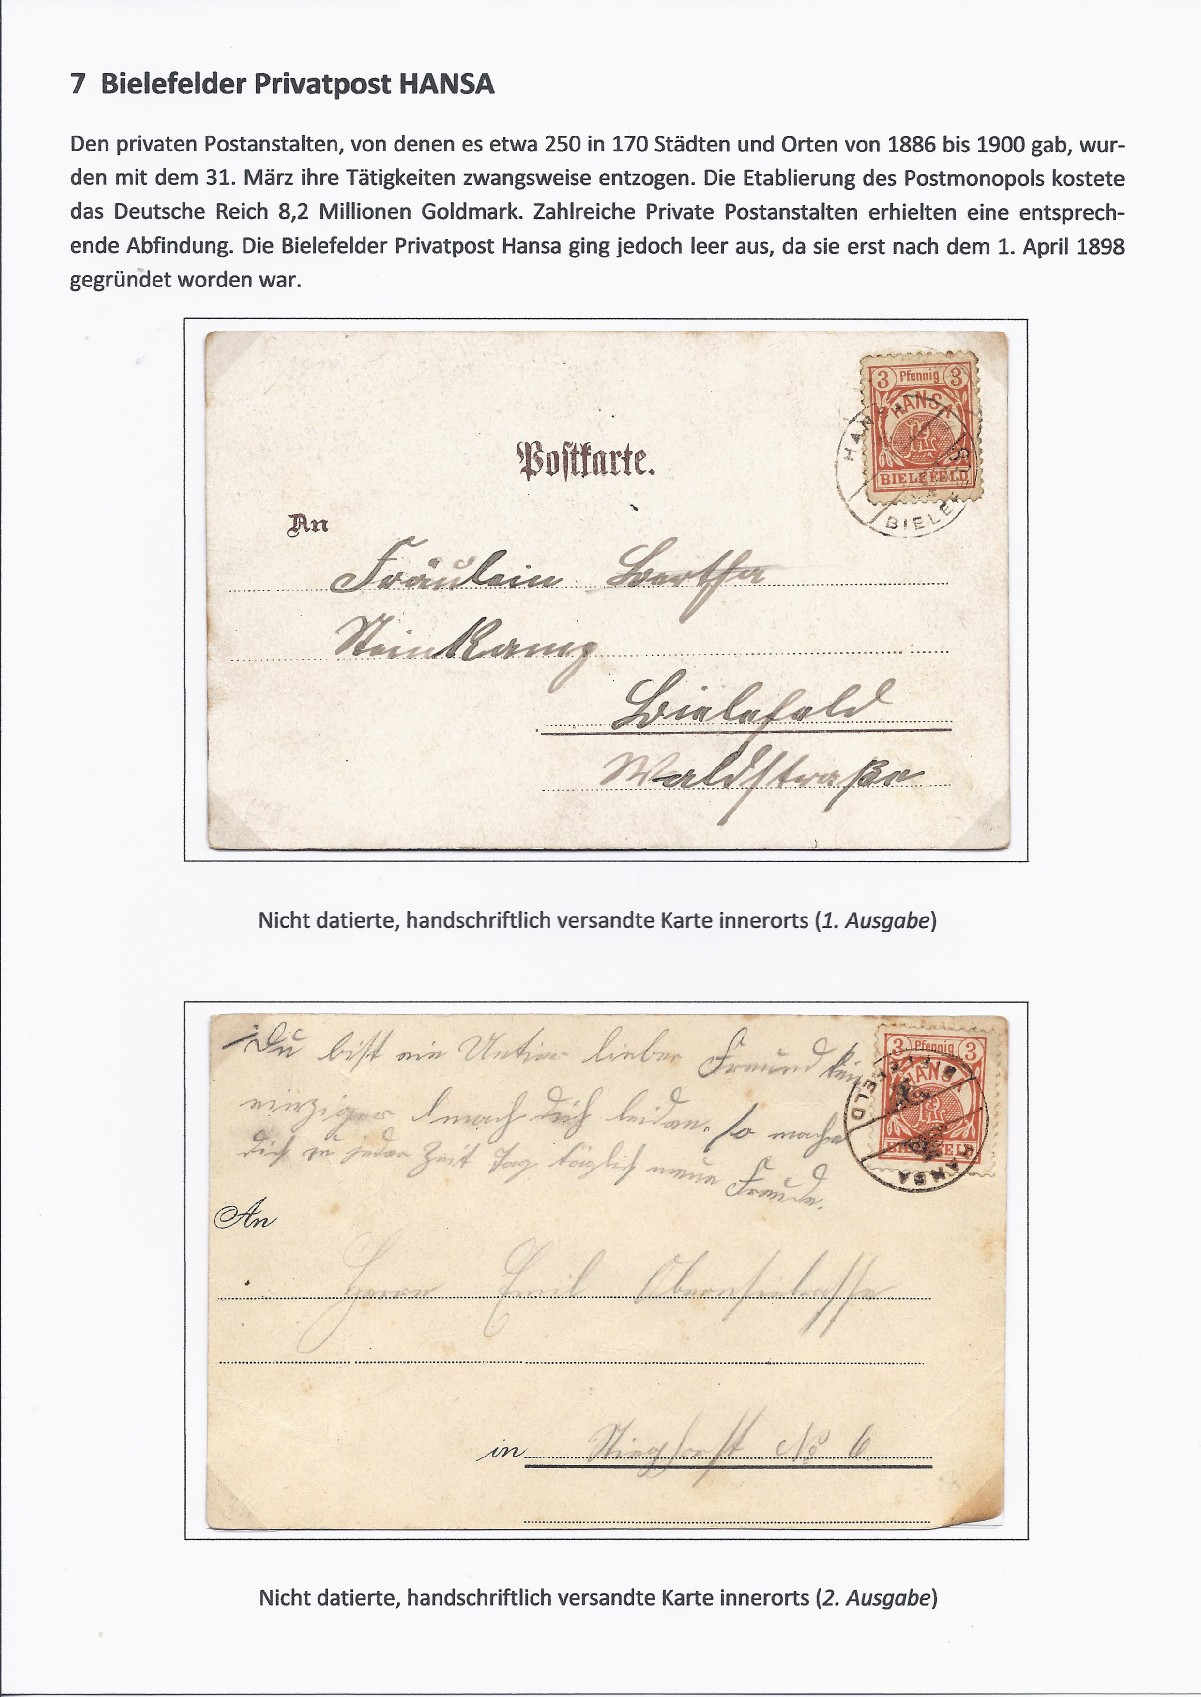 7 Bielefelder Privatpost HANSA
Den privaten Postanstalten, von denen es etwa 250 in 170 Städten und Orten von 1886 bis 1900 gab, wur-
den mit dem 31. März ihre Tätigkeiten zwangsweise entzogen. Die Etablierung des Postmonopols kostete
das Deutsche Reich 8,2 Millionen Goldmark. Zahlreiche Private Postanstalten erhielten eine entsprech-
ende Abfindung. Die Bielefelder Privatpost Hansa ging jedoch leer aus, da sie erst nach dem 1. April 1898
gegründet worden war.
3 Pfennig 3
HANSA
BIELEFELD
HANSA
BIELEFELD
Postkarte.
An
Fräulein Bertha
Steinkamp
Bielefeld
Waldstraße
Nicht datierte, handschriftlich versandte Karte innerorts (1. Ausgabe)
3 Pfennig 3
HANSA
BIELEFELD
BIELEFELD
HANSA
Du bist ein Untier lieber Freund kein
einziger mach dich leiden. so mache
dich zu jeder Zeit Tag täglich neue Freude.
An
Herrn Emil
in Stieghorst No 6
Nicht datierte, handschriftlich versandte Karte innerorts (2. Ausgabe)